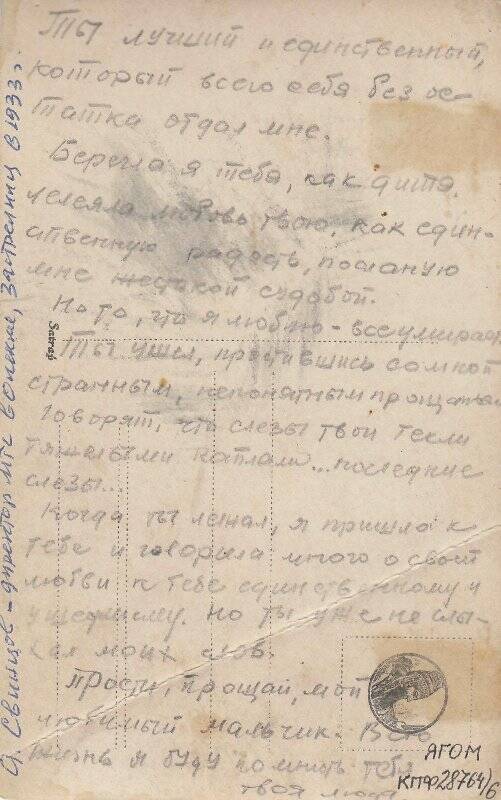 Ты лучший и единственный,
который всего себя без ос-
татка отдал мне.
Берегла я тебя, как дитя,
лелеяла любовь твою, как един-
ственную радость, посланую
мне жестокой судьбой.
Но то, что я люблю - все умирает
Ты ушел, простившись со мной
странным, непонятным прощаньем
Говорят, что слезы твои текли
тяжелыми каплями... последние
слезы...
Когда ты лежал, я пришла к
тебе и говорила много о своей
любви к тебе единственному и
ушедшему. Но ты уже не слы-
хал моих слов.
Прости, прощай, мой
любимый мальчик. Всю
жизнь я буду помнить тебя
твоя
Свинцов - директор МТС в Олекме, застрелился в 1933 г.
Satrap
ЯГОМ
КПФ 28764/6